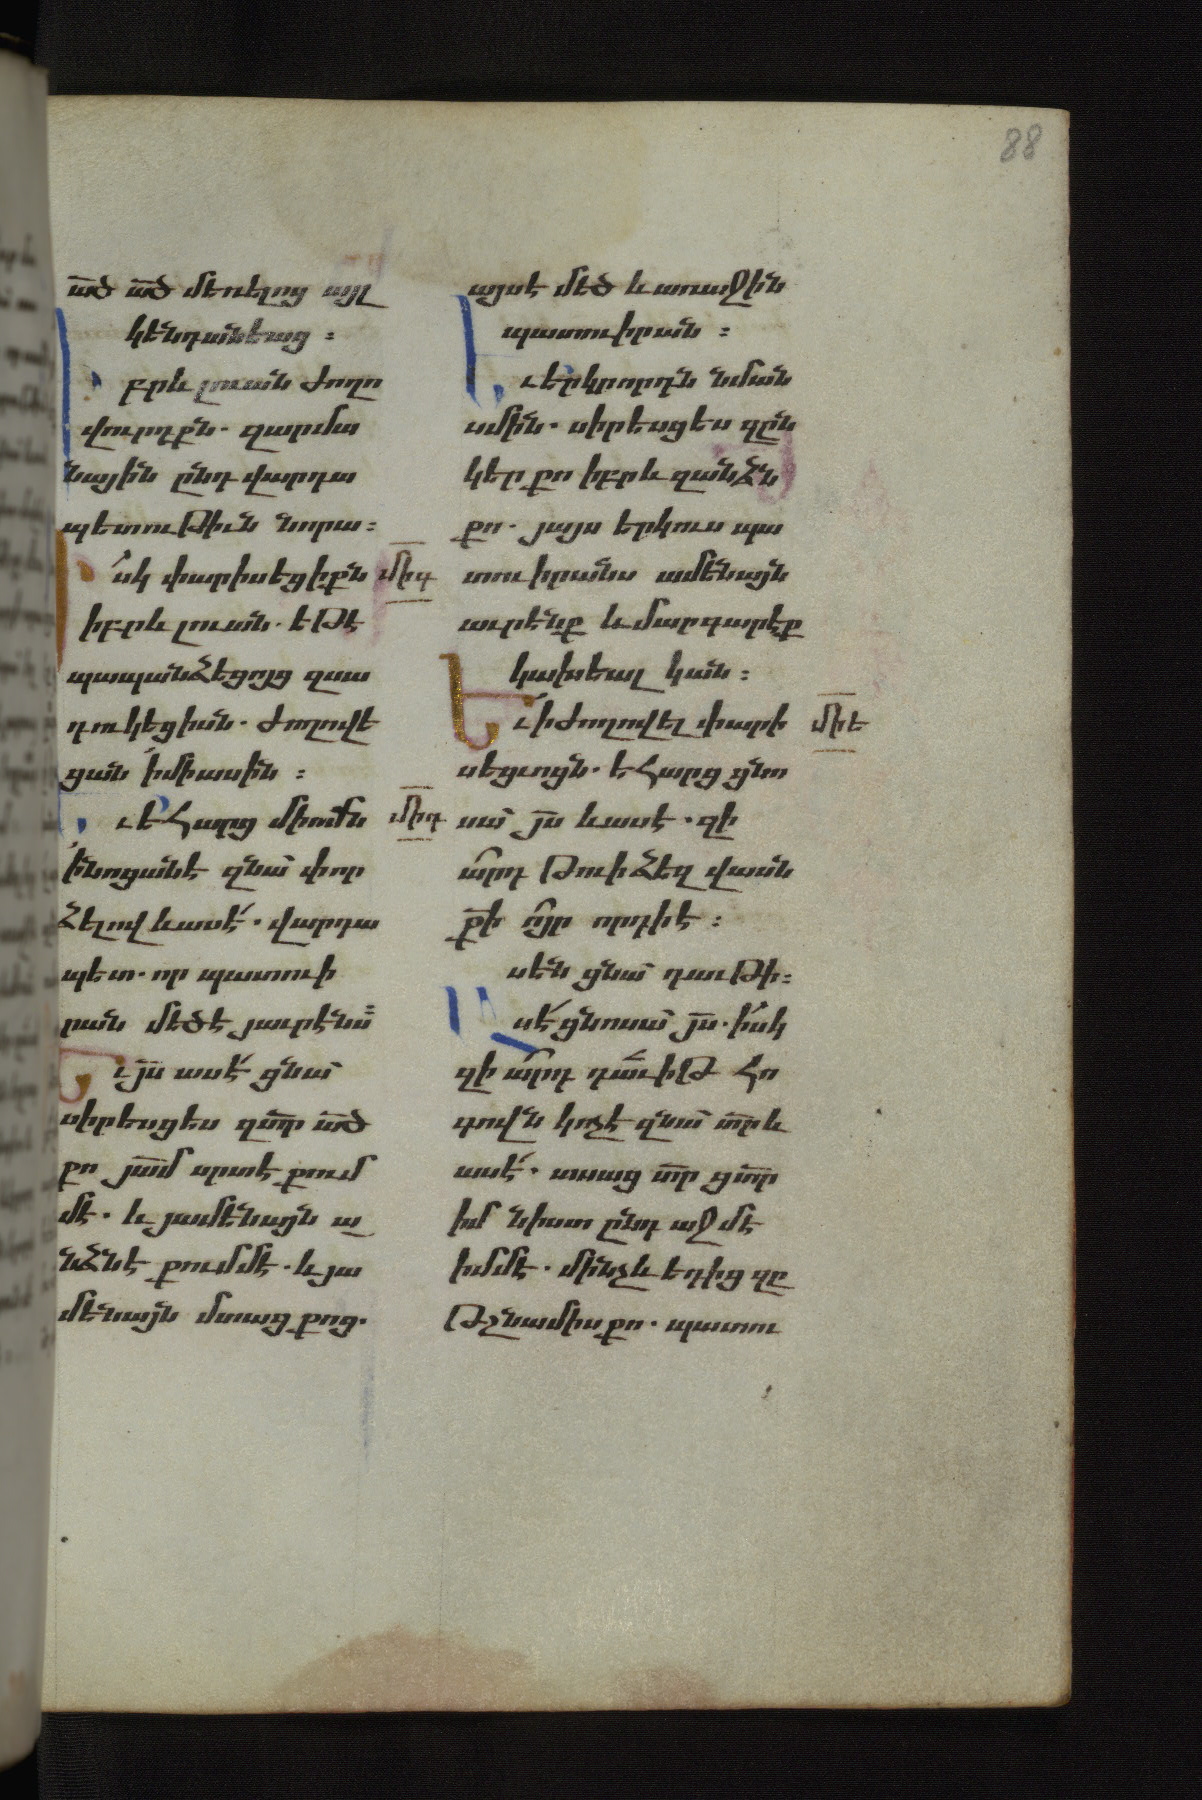 88
ած ած մեռելոց այլ
կենդանեաց :
Իբրև լուան ժողո
վուրդքն. զարմա
նային ընդ վարդա
պետութիւն նորա :
Իսկ փարիսեցիքն
իբրև լուան. եթէ
պապանձեցոյց զսա
դուկեցիան. ժողովե
ցան ՛ի միասին :
Եւ եհարց մի ումն
՛ի նոցանէ զնա փոր
ձելով և ասէ՛. վարդա
պետ. որ պատուի
րան մեծ է յաւրէնս :
Եւ յս ասէ՛ ցնա
սիրեսցես զտր ած
քո յամ սրտէ քում
մէ. և յամենայն ա
նձնէ քումմէ. և յա
մենայն մտաց քոց.
մխգ
մխդ
այս է մեծ և առաջին
պատուիրան :
Եւ երկրորդն նման
սմին. սիրեսցես զըն
կեր քո իբրև զանձն
քո. յայս երկուս պա
տուիրանս ամենայն
աւրէնք և մարգարէք
կախեալ կան :
Եւ ՛ի ժողովել փարի
սեցւոցն. եհարց ցնո
սա յս և ասէ. զի
արդ թուի ձեզ վասն
քի ոյր որդի է :
Ասեն ցնա դաւթի :
Ասէ՛ ցնոսա յս. ի՛սկ
զի արդ դաւիթ հո
գովն կոչէ զնա տր և
ասէ՛. ասաց տր ցտր
իմ նիստ ընդ աջմէ
իմմէ. մինչև եդից զը
թշնամիս քո. պատու
մխե